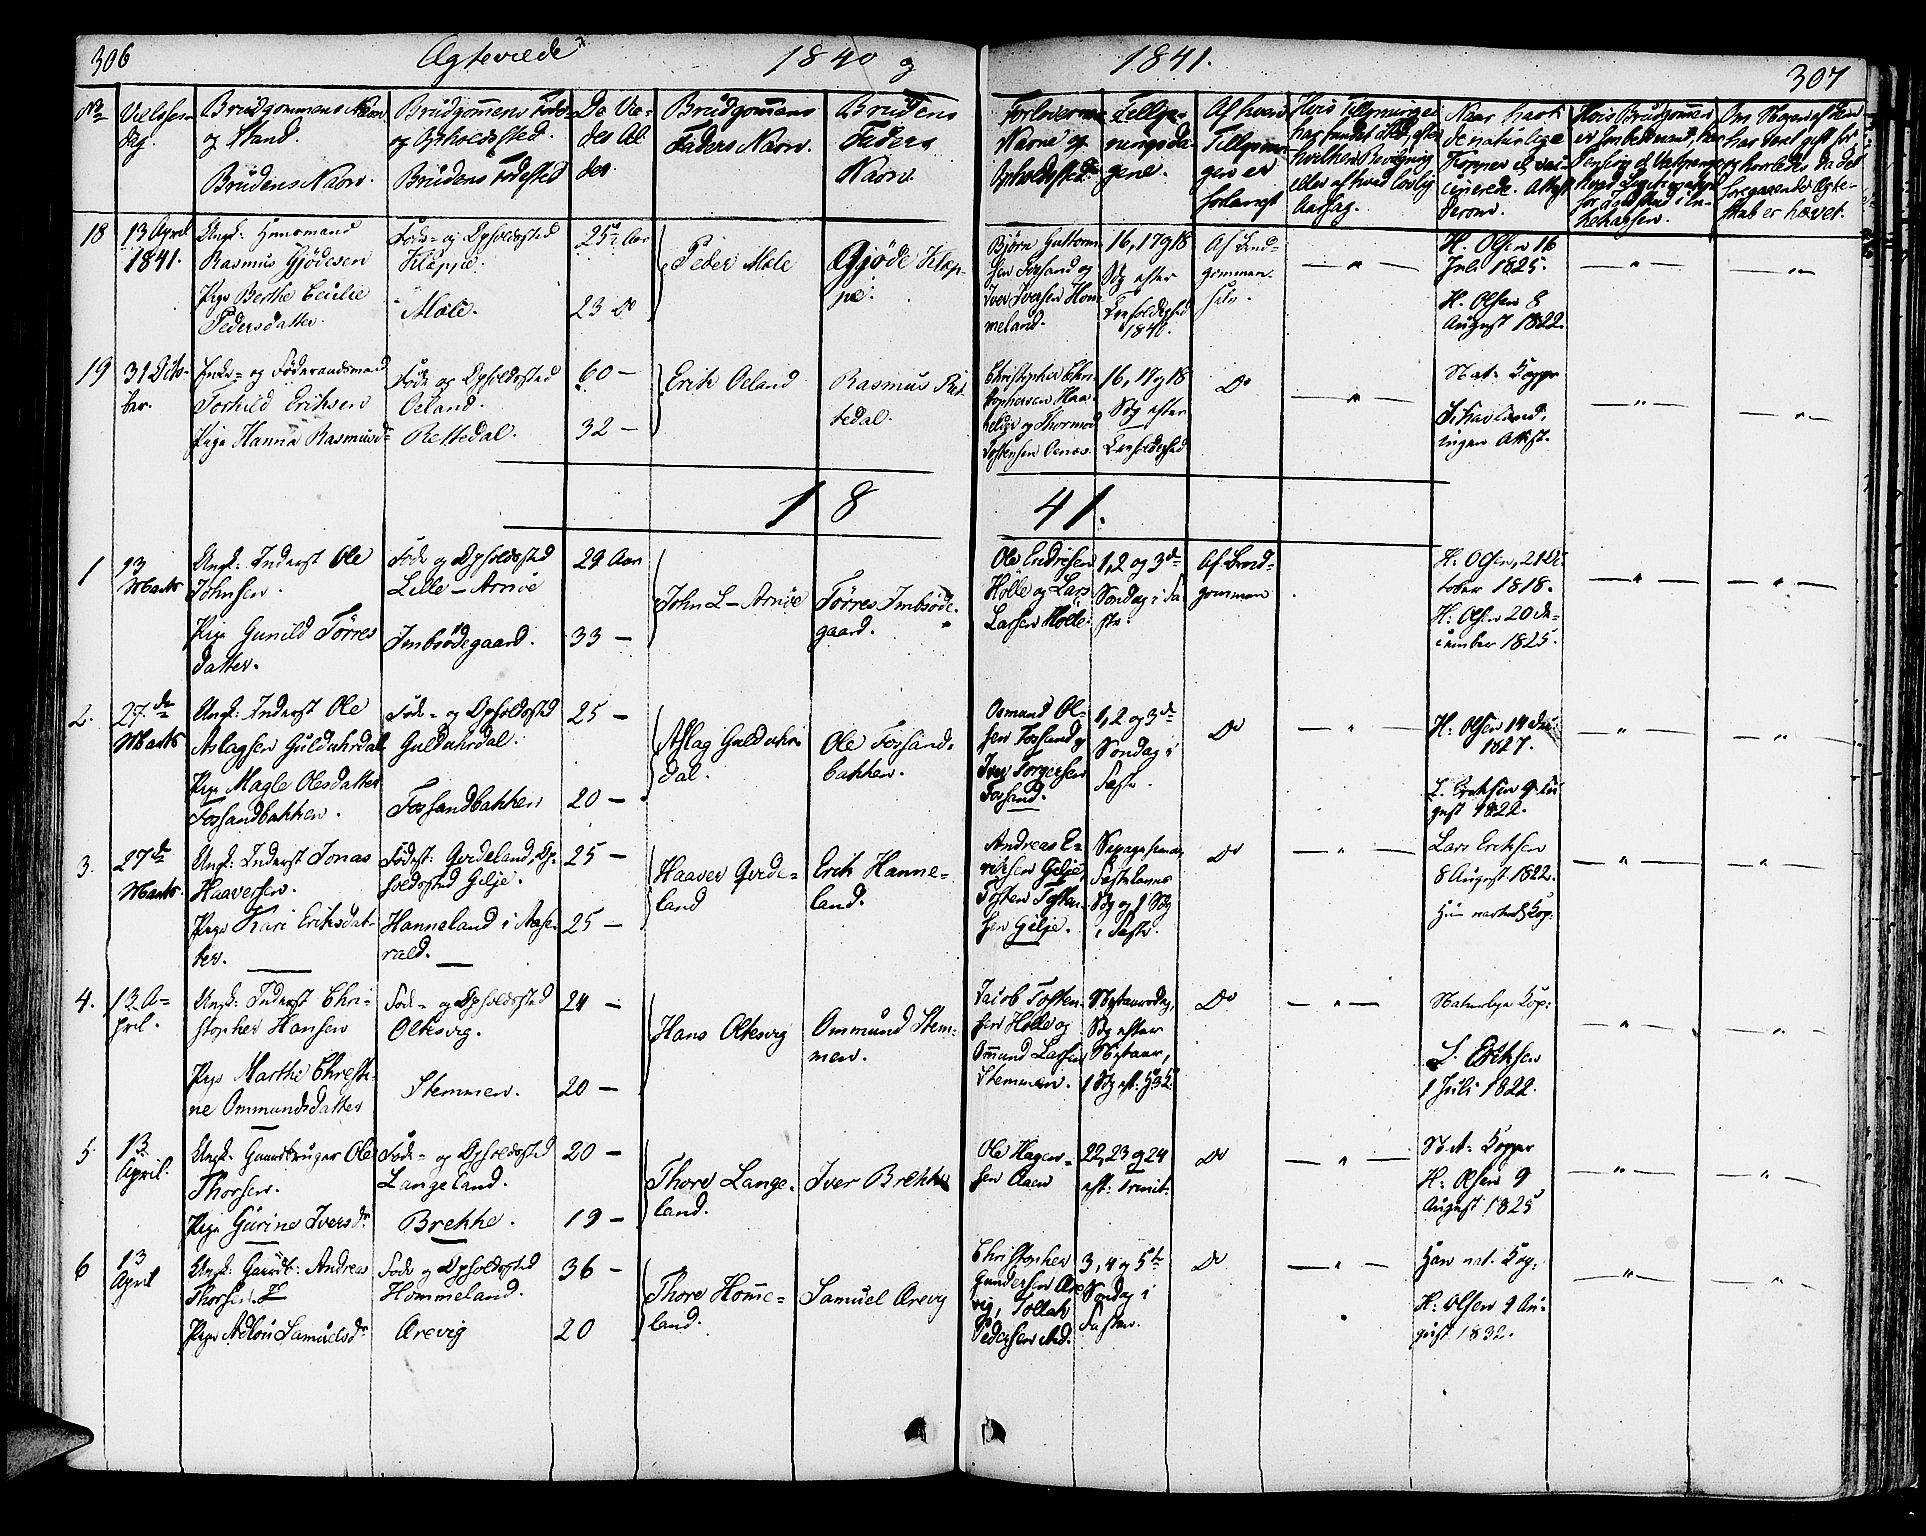 306 Ægteviede 1840 og 1841. 307
No
Vielsesdag.
Brudgommens Navn
og Stand.
Brudens Navn.
Brudgomens Føde-
og Opholdssted.
Brudens Fødested
De Vie-
des Al-
der.
Brudgommens
Faders Navn.
Brudens
Faders
Navn.
Forlovernes
Navne og
Opholdssted.
Tillys-
ningsda-
gene.
Af hvem
Tillysnin-
gen er
forlangt
Naar havt
de naturlige
Kopper el. vac-
cinerede. Attest
derom.
18
13 April
1841.
Ungk: Huusmand
Rasmus Gjødesen
Pige Berthe Cecilie
Pedersdatter.
Føde- og Opholdssted
Kløppe.
Mæle.
25 Aar
23 Do
Peder Mæle
Gjøde Kløp-
pe.
Bjørn Guttorm-
sen Forsand og
Iver Iversen Hom-
meland.
16, 17 og 18
Sdg efter
Trefoldighed
1840.
Af Brud-
gommen
selv.
— " —
H. Olsen 16
Juli 1825.
H. Olsen 8
August 1822.
— " —
— " —
19
31 Octo-
ber.
Enke- og Føderaadsmand
Torkild Eriksen
Pige Hanna Rasmusdr
Føde og Opholdssted
Oeland.
Rettedal.
60 —
32 —
Erik Oeland
Rasmus Ret-
tedal.
Christopher Chri-
stophersen Haa-
helle og Thormod
Tostensen Oenæs.
16, 17 og 18
Sdg efter
Trefoldighed
Do
— " —
Nat. Kopper
ingen Attest.
— " —
— " —
1841.
1
13
Marts
Ungk: Inderst Ole
Johnsen.
Pige Gunild Tørres
datter.
Føde og Opholdssted
Lille-Arnøe
Imbsødegaard.
29 Aar
33 —
John L-Arnøe
Tørres Imbsøde-
gaard.
Ole Endresen
Holle og Lars
Larsen Holle.
1, 2 og 3de
Søndag i Fa-
ste.
Af Brud-
gommen
H. Olsen, 21 Oc-
tober 1818.
H. Olsen 20 De-
cember 1825.
— " —
— " —
2.
27de
Marts
Ungk: Inderst Ole
Aslagsen Guldahrdal
Pige Magle Olesdatter
Forsandbakken.
Føde- og Opholdssted
Guldahrdal.
Forsandbakken
25 —
20 —
Aslag Guldahr-
dal.
Ole Forsand-
bakken.
Osmund Ol-
sen Forsand og
Iver Torgersen
Forsand.
1, 2 og 3de
Søndag i
Faste.
Do
— " —
H. Olsen 14 Juli
1827.
L. Eriksen 9 Au-
gust 1822.
— " —
— " —
3.
27de
Marts.
Ungk: Inderst Jonas
Haaversen.
Pige Kari Eriksdat-
ter.
Fødest: Qvideland, Op-
holdssted Gilje.
Hanneland i Aase-
rald.
25 —
25 —
Haaver Qvide-
land
Erik Hanne-
land.
Andreas E-
riksen Gilje,
Tosten Tosten-
sen Gilje.
Sepagesima,
Fastelavns
Sdg og 1 Sdg
i Faste.
Do
— " —
Lars Eriksen
8 August 1822.
Hun naturl. Kop.
— " —
— " —
4.
13 A-
pril.
Ungk: Inderst Chri-
stopher Hansen
Pige Marthe Christi-
ne Ommundsdatter
Føde- og Opholdssted
Oltesvig.
Stemmen.
24 —
20 —
Hans Oltesvig
Ommund Stem-
men.
Jacob Tosten-
sen Holle og
Ommund Larsen
Stemmen.
Nytaarsdag,
Sdg efter
Nytaar,
Do
— " —
Naturlige Kop:
L. Eriksen
1 Juli 1822.
— " —
— " —
5.
13
April.
Ungk. Gaardbruger Ole
Thorsen.
Pige Gurine Iversdr
Føde- og Opholdssted
Langeland.
Brekke.
20 —
19 —
Thore Lange-
land.
Iver Brekke
Ole Hagen-
sen Aaen
22, 23 og 24
eft: Trinit:
Do
— " —
Nat: Kopper
H. Olsen 9
August 1825
— " —
— " —
6
13
April
Ungk: Gaardb: Andreas
Thorsen
Pige Adlou Samuelsdr
Føde og Opholdssted
Hommeland.
Arevig
36 —
20
Thore Homme-
land.
Samuel Arevig
Christopher
Gundersen Are-
vig, Tollak
Pedersen Aad.
3, 4 og 5te
Søndag i
Fasten.
Do
— " —
Han nat. Kop:
H: Olsen 9 Au-
gust 1832.
— " —
— " —